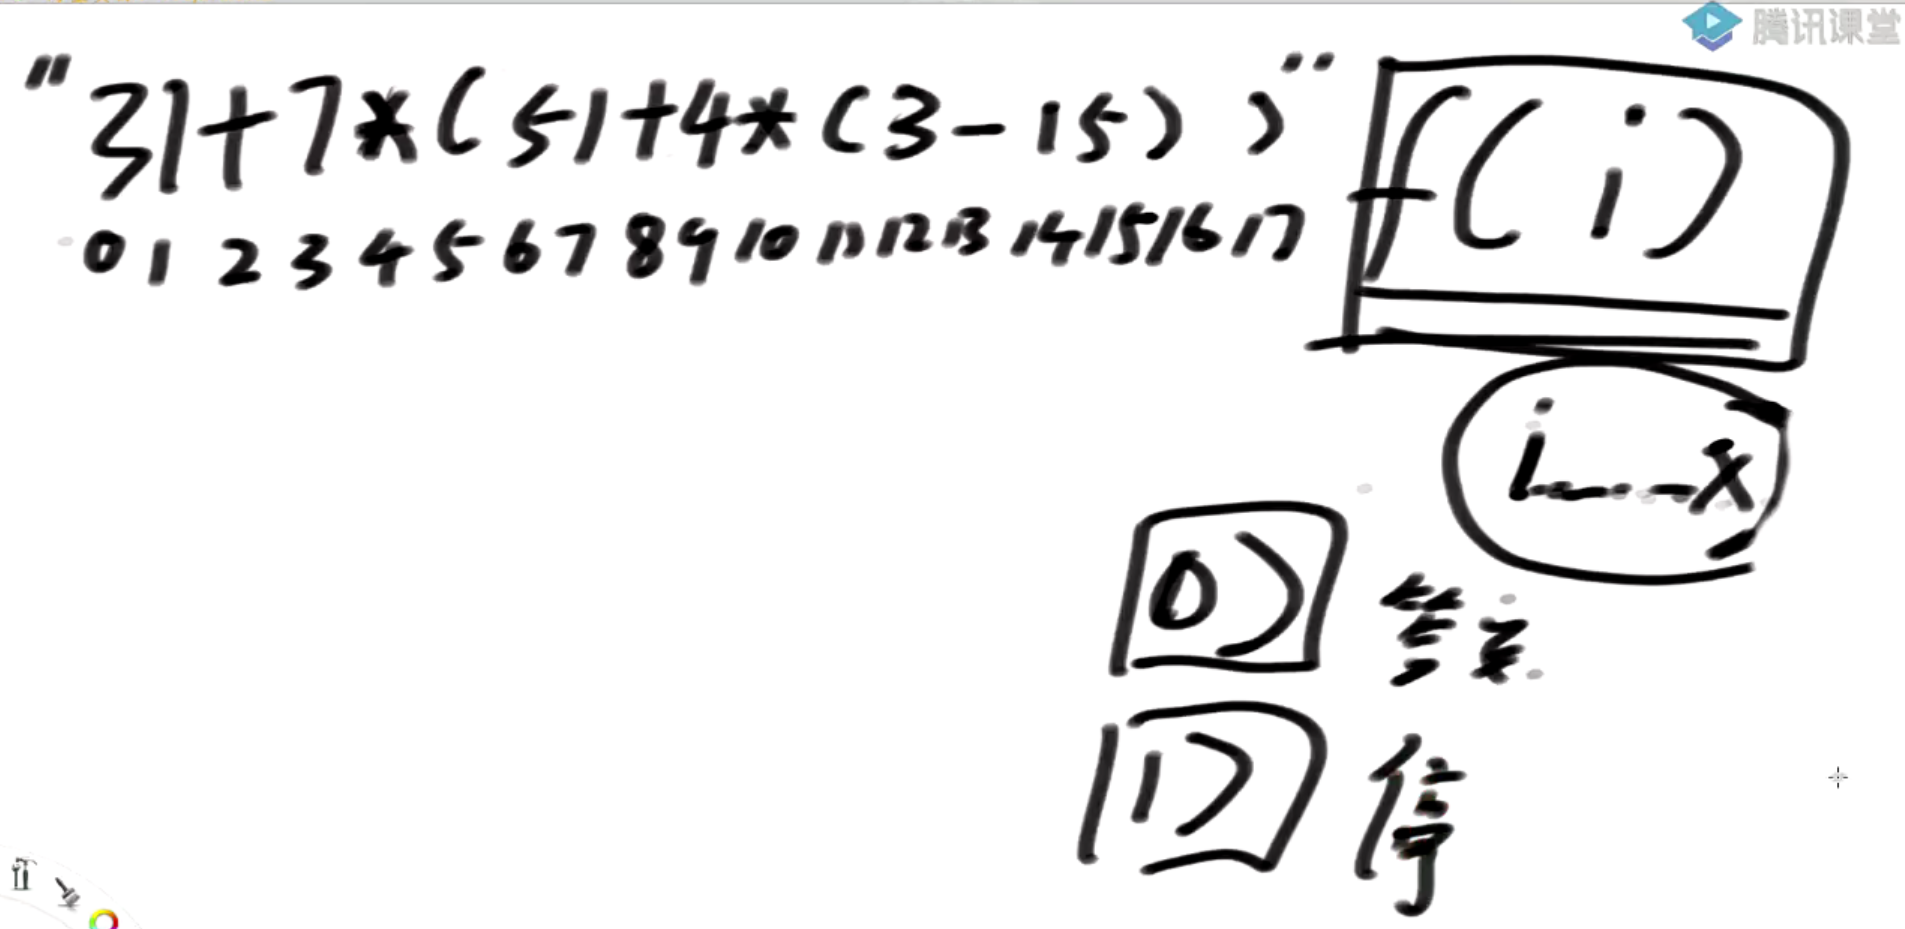 腾讯课堂
"31+7*(51+4*(3-15))" f(i)
0 1 2 3 4 5 6 7 8 9 10 11 12 13 14 15 16 17
i---x
0) 答案
1) 停